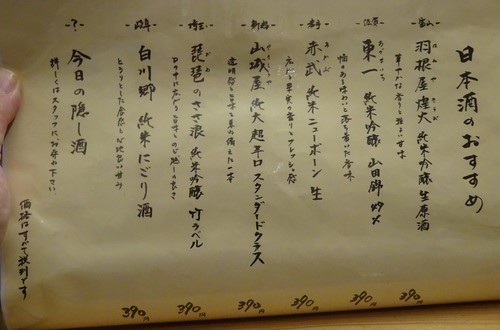 日本酒のおすすめ
-富山-
羽根屋 煌火 純米吟醸 生原酒
はねや きらび
華やかな香りと程よい甘味
390円
-佐賀-
東一 純米吟醸 山田錦 49%
あづまいち
幅のある味わいと落ち着いた香味
390円
-岩手-
赤武 純米 ニューボーン 生
あかぶ
390円
-新潟-
山城屋 純大 超辛口 スタンダードクラス
やましろや
透明感と旨味を兼ね備えた一本
390円
-埼玉-
琵琶のさざ浪 純米吟醸 竹ラベル
390円
-岐阜-
白川郷 純米 にごり酒
とろりとした食感と心地良い甘み
390円
-?-
今日の隠し酒
詳しくはスタッフにお尋ね下さい
価格はすべて税別です